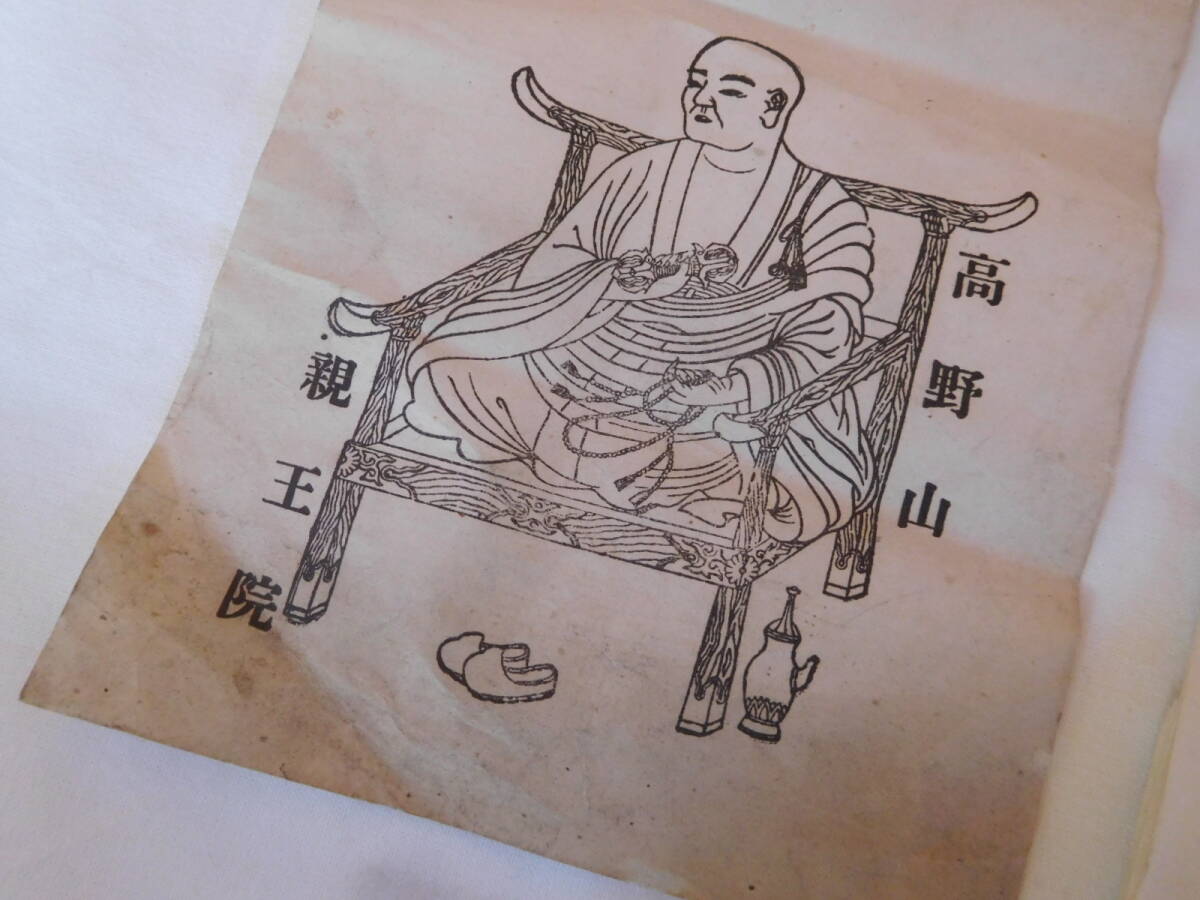 高野山
親王院